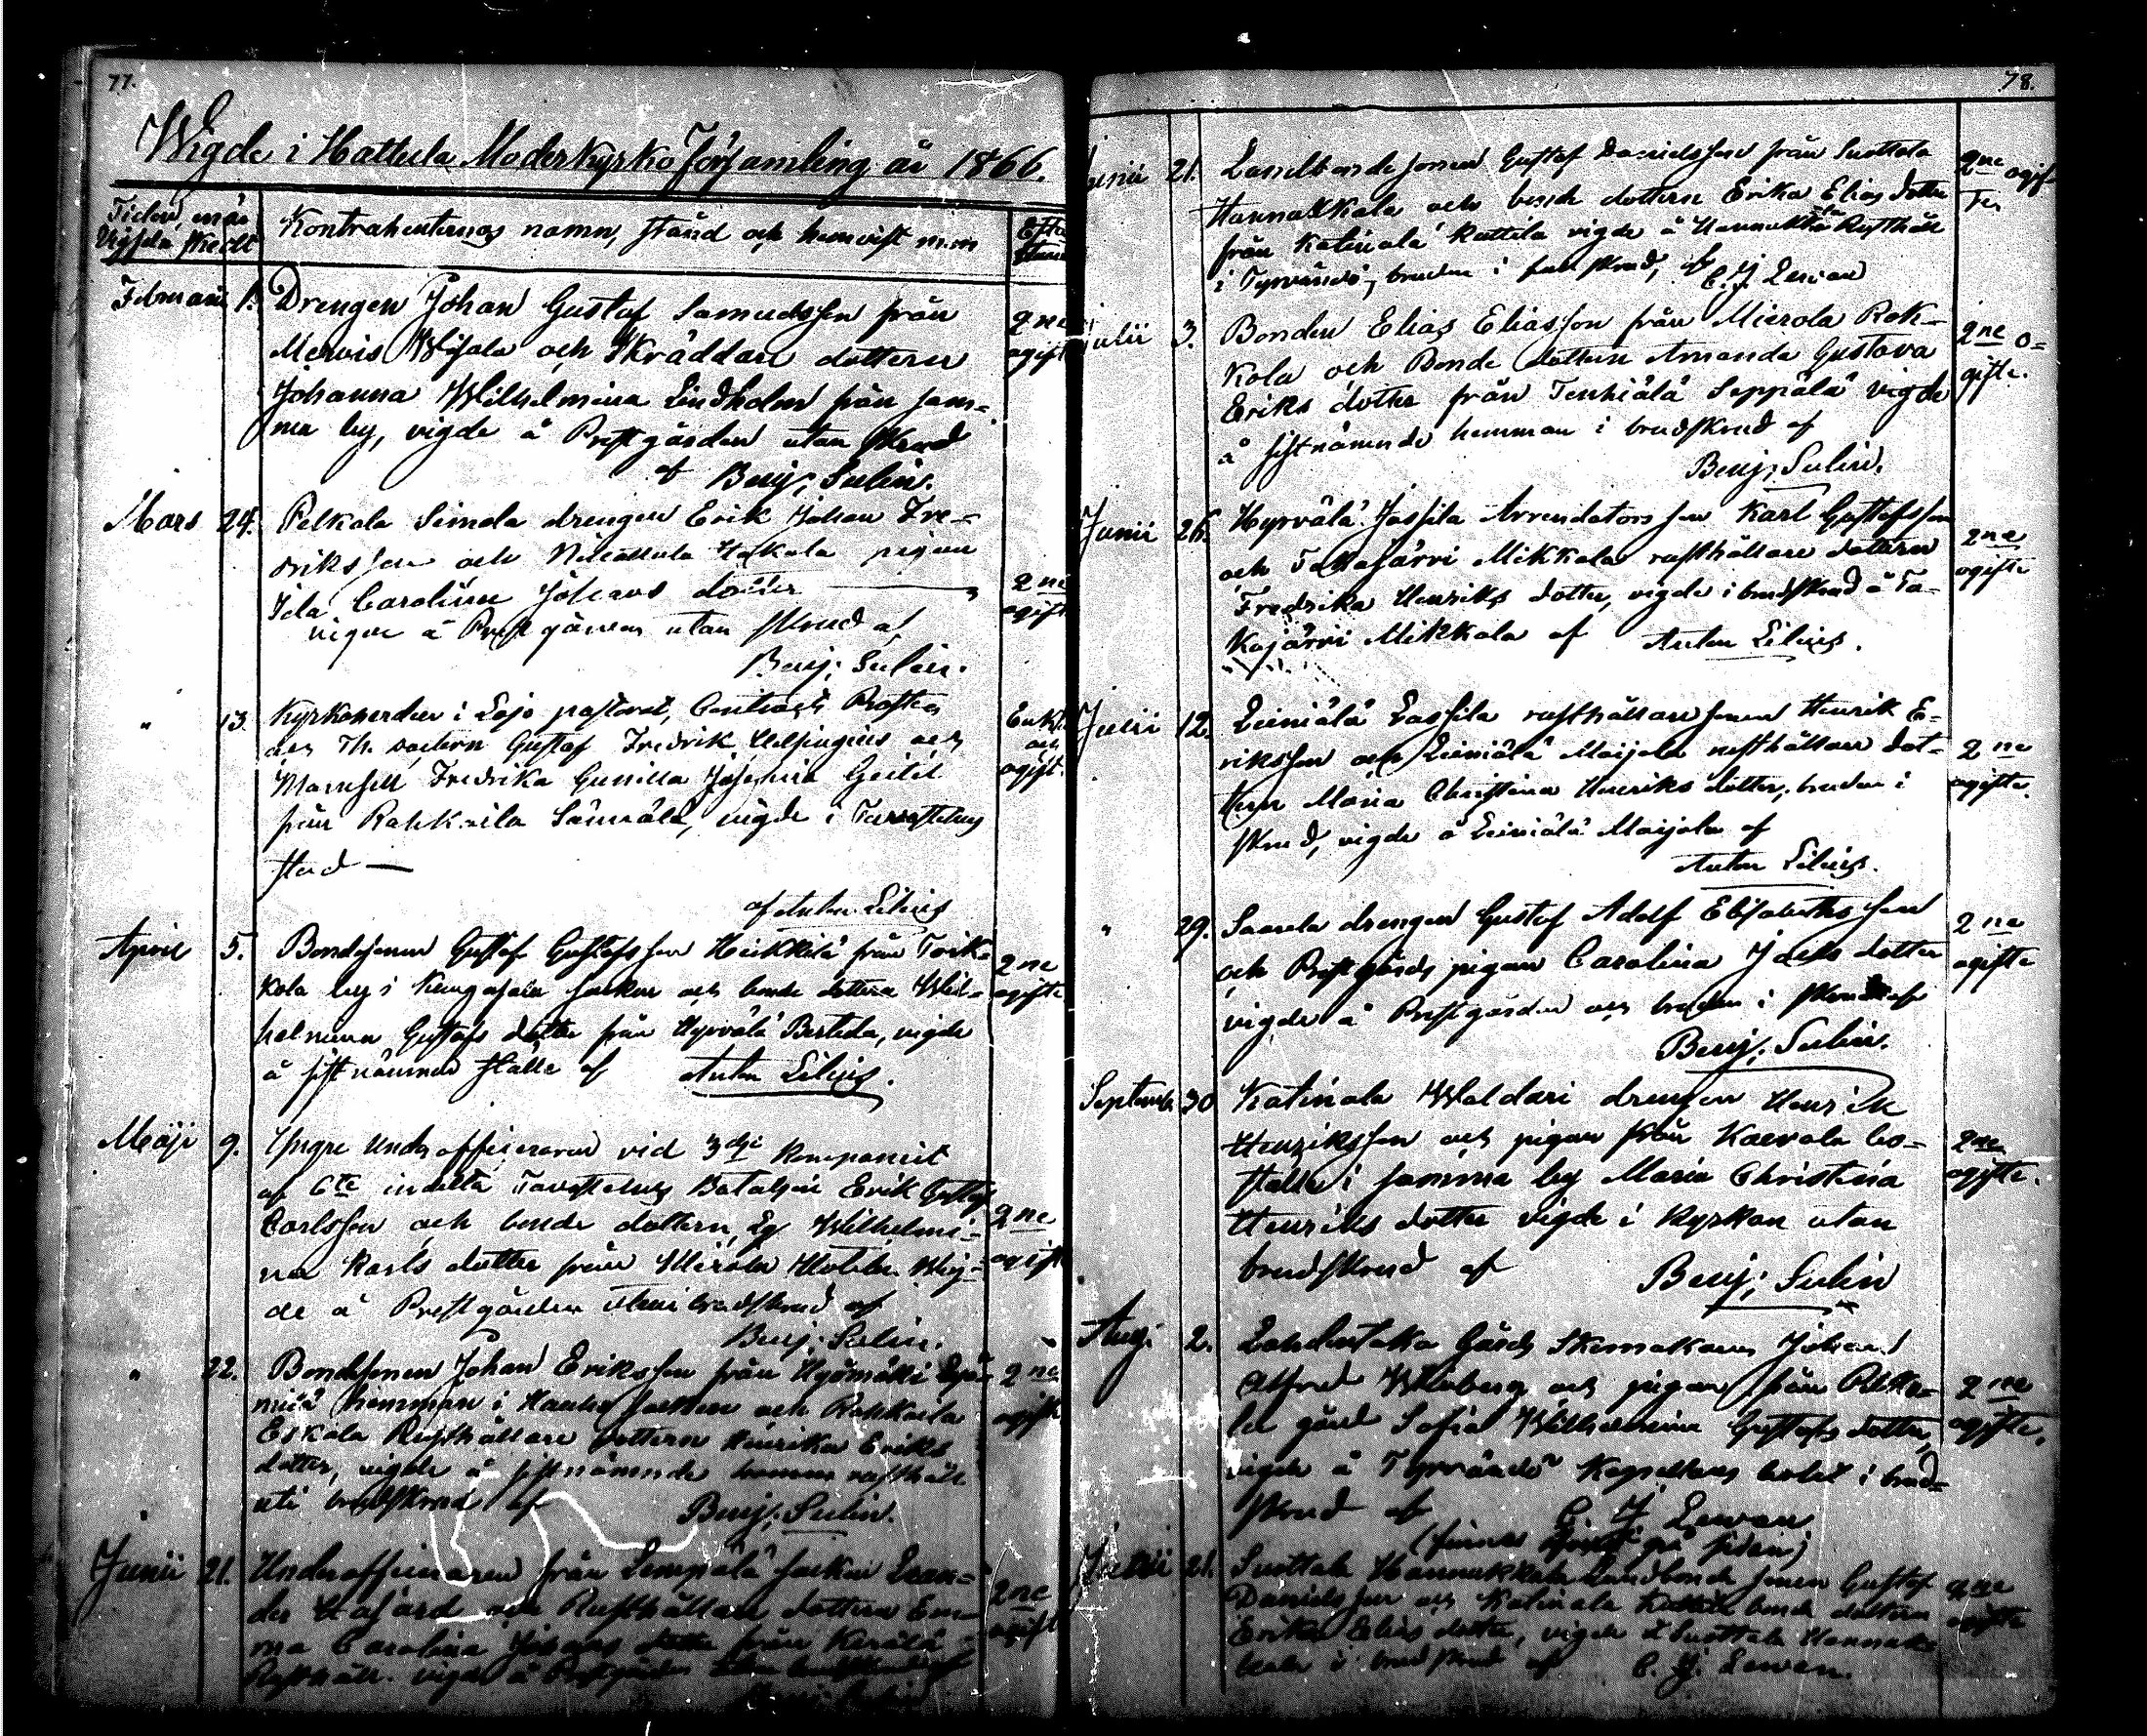 77.
Wigde i Hattula Moderkyrko Församling år 1866.
Tiden, när
Vigseln skedt
Kontrahenternas namn, stånd och hemvist m.m
Februarii 1. Drengen Johan Gustaf Samuelsson från
Mervis Wijala och Skräddare dotteren
Johanna Wilhelmina Lindholm från sam-
ma by, vigde å Prestgården utan skrud
af Benj. Sulin.
2ne
ogifte
Mars 24. Pelkola Simola drengen Erik Johan Fre-
driksson och Nihattula Hakala pigan
Ida Carolina Johans dotter
vigde å Prestgården utan skrud af
Benj. Sulin.
2ne
ogifte
" 13. Kyrkoherden i Lojo pastorat, Contracts Prosten
och Th. doctorn Gustaf Fredrik Helsingius och
Mamsell Fredrika Gunilla Josephina Geitel
från Rahkoila Sännälä, vigde i Tavastehus
stad —
af Anton Lilius
Enkl.
och
ogift.
April 5. Bondesonen Gustaf Gustafsson Heikkilä från Toik-
kola by i Kangasala socken och bonde dottern Wil-
helmina Gustafs dotter från Hyrvälä Bertula, vigde
å sistnämnde ställe af Anton Lilius.
2ne
ogifte
Maji 9. Yngre Underofficeraren vid 3dje kompaniet
af 6te indelta Tavastehus Bataljon Erik Gustaf
Carlsson och bonde dottern Eva Wilhelmi-
na Karls dotter från Mierola Uotila. Wig-
de å Prestgården utan brudskrud af
Benj. Sulin.
2ne
ogift
" 22. Bondesonen Johan Eriksson från Hyömäki
hemman i Hauho socken och Rahkoila
Eskola Rusthållare dottern Henrika Eriks
dotter, vigde å sistnämnde hemmans rusthåll
uti brudskrud af Benj. Sulin.
2ne
ogifte
Junii 21. Underofficeraren från Lempälä socken Lean-
der Hafård och Rusthållare dottern Em-
ma Carolina Johans dotter från Kerälä
Rusthåll. vigde å Prestgården utan brudskrud af
Benj. Sulin
2ne
ogift
78.
Junii 21. Landbondesonen Gustaf Danielsson från Suottala
Hannukkala och bonde dottern Erika Elias dotter
från Katinala Kuttila vigde å Hannukkala Rusthåll
i Tyrvändö, bruden i full skrud, af C. J. Lewan
2ne ogif-
te
Julii 3. Bonden Elias Eliasson från Mierola Rek-
kola och Bonde dottern Amanda Gustava
Eriks dotter från Tenhiälä Seppälä vigde
å sistnämnde hemman i brudskrud af
Benj. Sulin.
2ne o-
gifte.
Junii 26. Hyrvälä Jassila Arrendators son Karl Gustafsson
och Takajärvi Mikkola rusthållare dottern
Fredrika Henriks dotter, vigde i brudskrud å Ta-
kajärvi Mikkola af Anton Lilius.
2ne
ogifte
Julii 12. Leiniälä Lassila rusthållare sonen Henrik E-
riksson och Leiniälä Maijala rusthållare dot-
tern Maria Christina Henriks dotter, bruden i
skrud, vigde å Leiniälä Maijala af
Anton Lilius.
2ne
ogifte.
" 29. Saarela drengen Gustaf Adolf Elisabethsson
och Prestgårds pigan Carolina Joels dotter
vigde å Prestgården och bruden i skrud af
Benj. Sulin.
2ne
ogifte
Septemb. 30 Katinala Waldari drengen Henrik
Henriksson och pigan från Kaevola bo-
ställe i samma by Maria Christina
Henriks dotter vigde i kyrkan utan
brudskrud af Benj. Sulin
2ne
ogifte.
Aug. 2. Lahdentaka Gårds Skomakaren Johan
Alfred Winberg och pigan från
gård Sofia Wilhelmina Gustafs dotter,
vigde å Tyrvändö Kapellans bolet i brud-
skrud af C. J. Lewan
2ne
ogifte.
(finnes förut på sidan)
Junii 21. Suottala Hannukkala Landbonde sonen Gustaf
Danielsson och Katinala Kuttila bonde dottern
Erika Elias dotter, vigde å Suottala Hannuk-
kala i brudskrud af C. J. Lewan.
2ne
ogifte